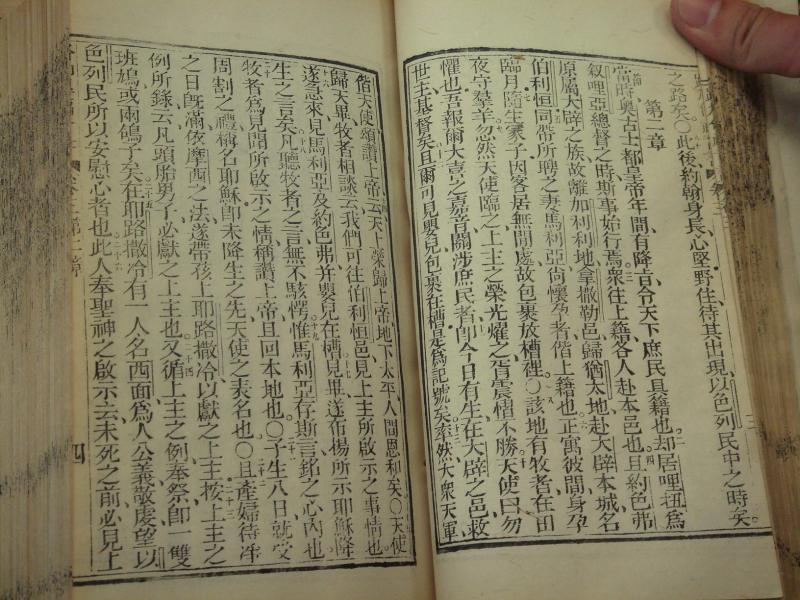 之路矣〇此後約翰身長心堅野住待其出現以色列民中之時矣
第二章
當時奧古士都皇帝年間有降旨令天下庶民具籍也却居哩扭爲
叙哩亞總督之時斯事始行焉衆往上籍各人赴本邑也且約色弗
原屬大辟之族故離加利利地拿撒勒邑歸猶太地赴大辟本城名
伯利恒同帶所聘之妻馬利亞尚懷孕者偕上籍也正寓彼間身孕
臨月隨生冢子因客居無閒處故包裹放槽裡〇該地有牧者在田
夜守羣羊忽然天使臨之上主之榮光燿之胥震惶不勝天使曰勿
懼也吾報爾大喜之嘉音關涉庶民者卽今日有生在大辟之邑救
世主基督矣且爾可見嬰兒包裹在槽是爲記號矣率然大衆天軍
偕天使頌讚上帝云天上榮歸上帝地下太平人間恩和矣〇天使
歸天畢牧者相談云我們可往伯利恒邑見上主所啟示之事情也
遂急來見馬利亞及約色弗并嬰兒在槽見畢遂布揚所示耶穌降
生之言矣凡聽牧者之言無不駭愕惟馬利亞存斯言銘之心內也
牧者爲見聞所啟示之情稱讚上帝且回本地也〇子生八日就受
周割之禮稱名耶穌卽未降生之先天使之表名也〇且產婦待淨
之日旣滿依摩西之法遂帶孩上耶路撒冷以獻之上主按上主之
例所錄云凡頭胎男子必獻之上主也又循上主之例奉祭卽一雙
班鳩或兩鴿子矣在耶路撒冷有一人名西面爲人公義敬虔望以
色列民所以安慰心者也此人奉聖神之啟示云未死之前必見上
四